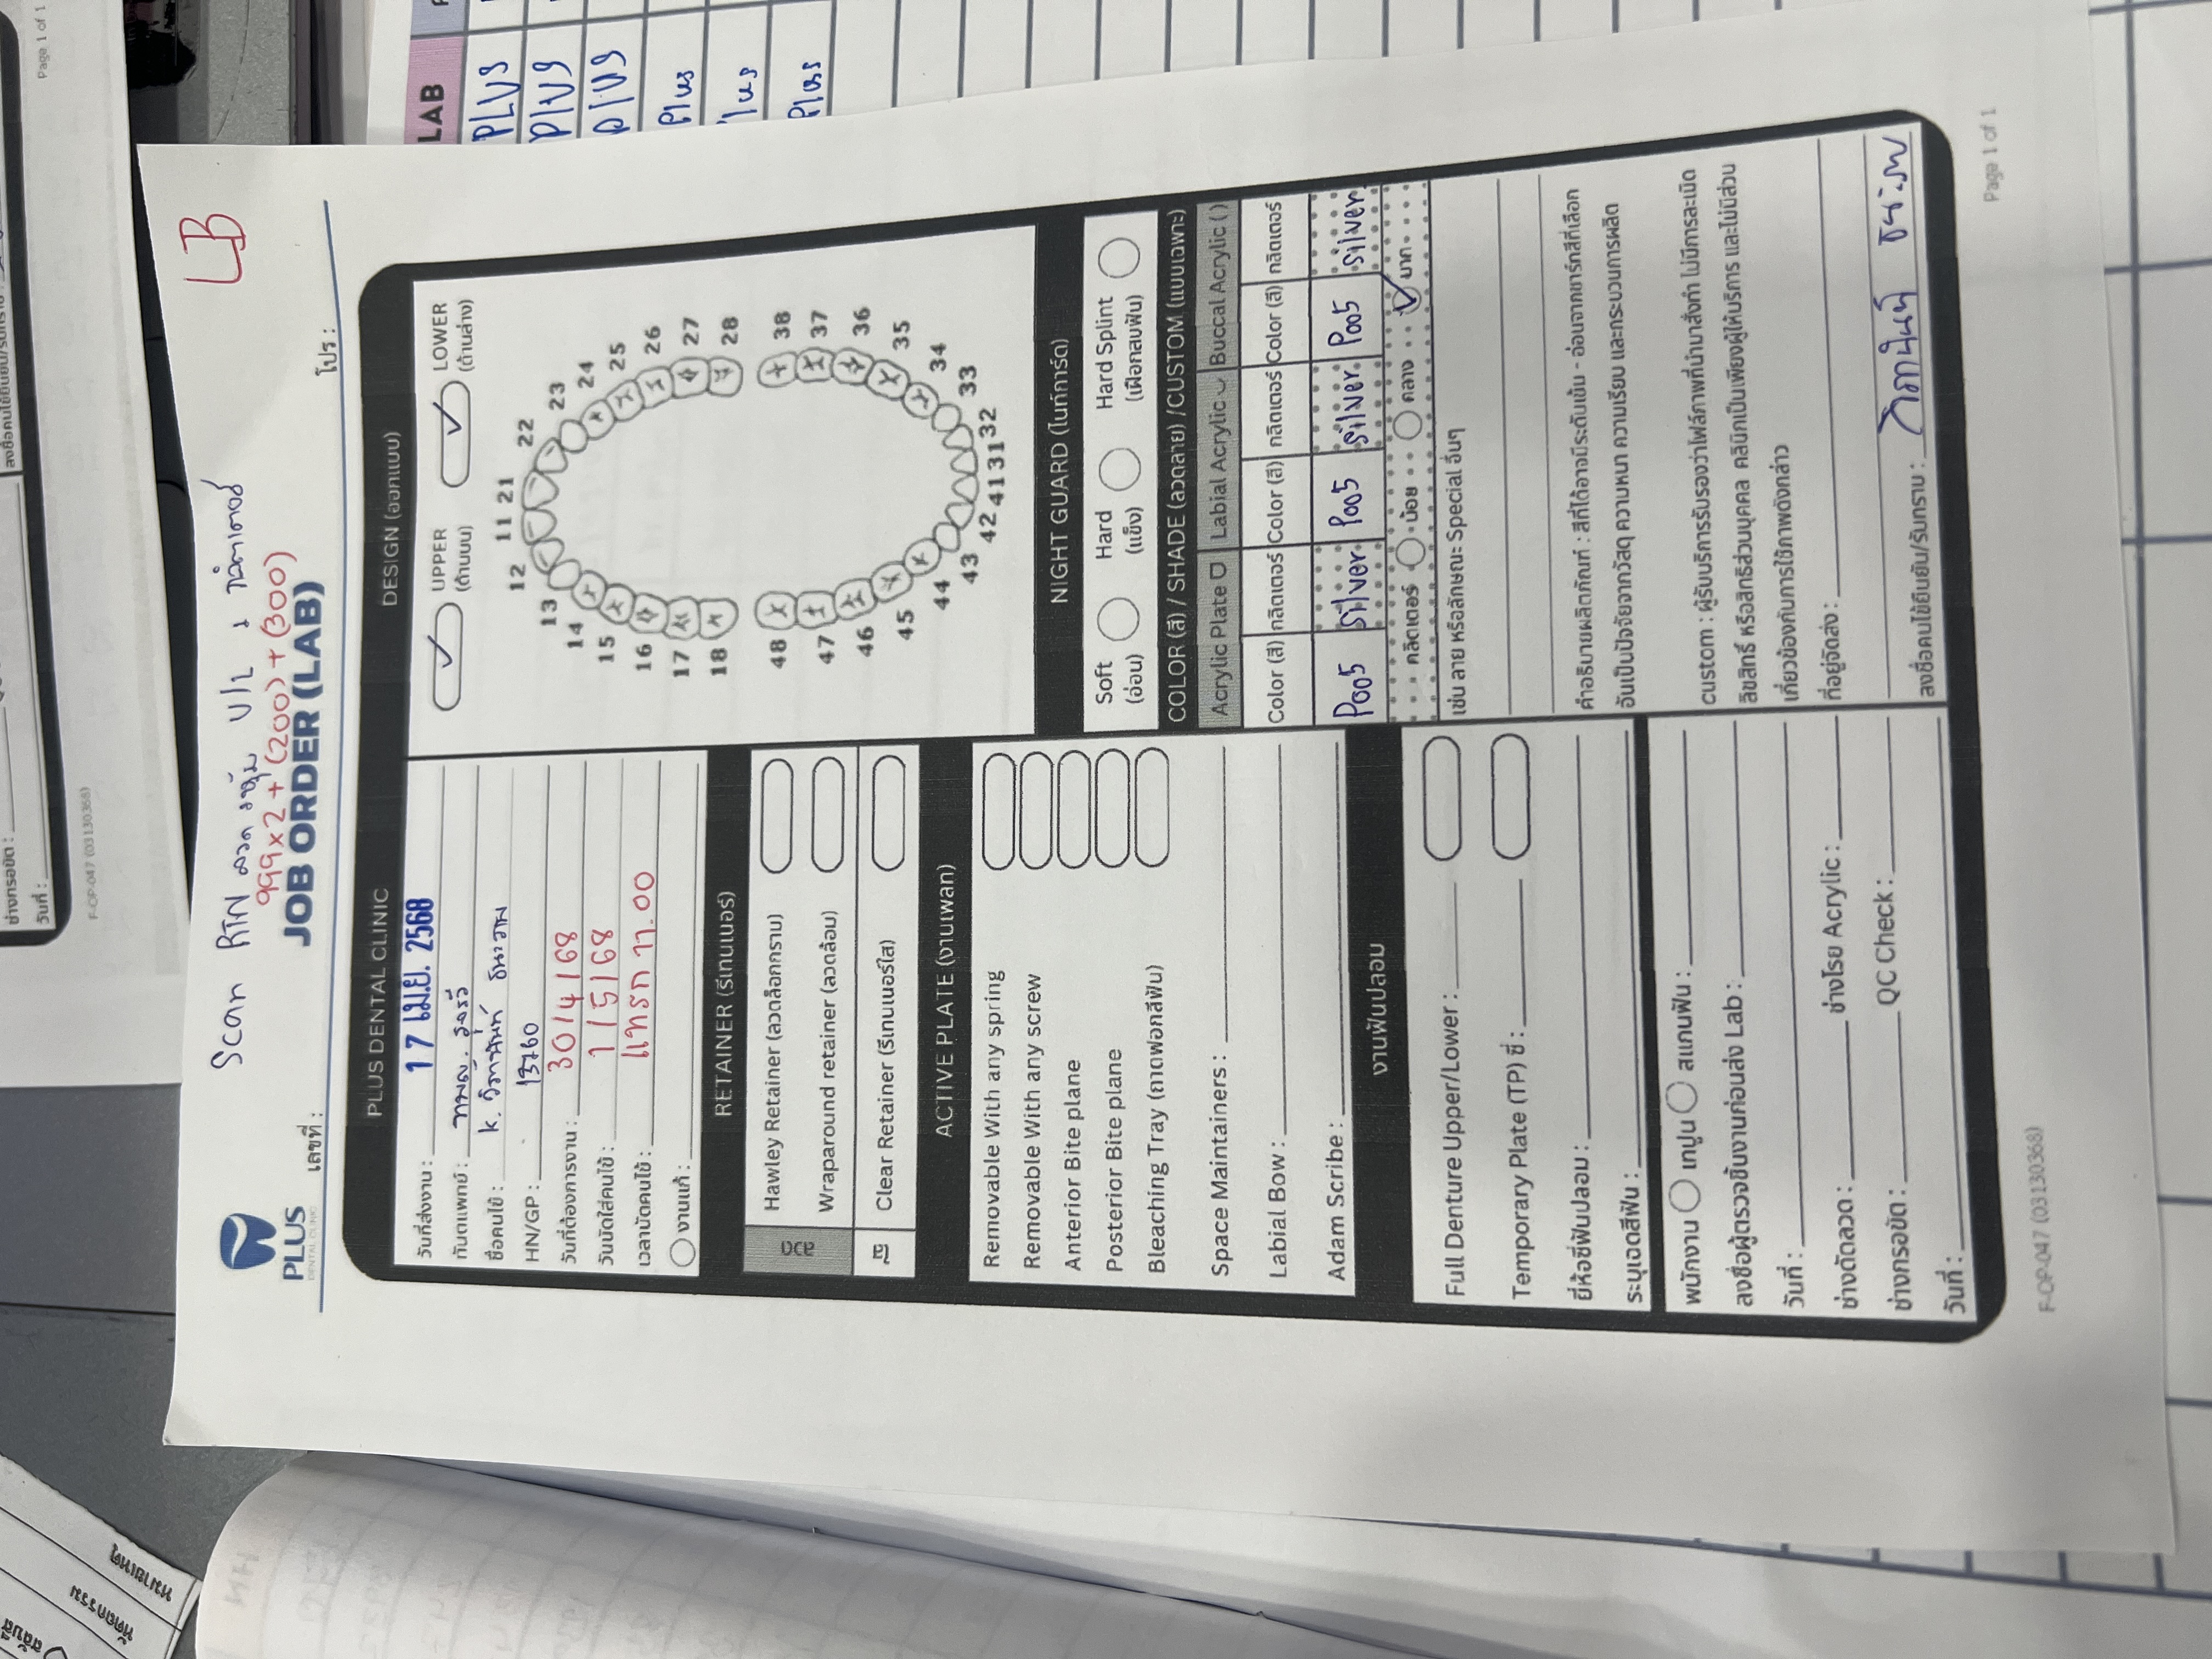 LB
Scan RTN ลวด U/L + กลิตเตอร์
999x2 + (200) + (300)
PLUS
DENTAL CLINIC
JOB ORDER (LAB)
เลขที่ :
โปร :
PLUS DENTAL CLINIC
วันที่ส่งงาน : 17 เม.ย. 2568
ทันตแพทย์ :
ชื่อคนไข้ : K.
HN/GP : 13760
วันที่ต้องการงาน : 30/4/68
วันนัดใส่คนไข้ : 1/5/68
เวลานัดคนไข้ : แทรก 11.00
งานแก้ :
RETAINER (รีเทนเนอร์)
ลวด
Hawley Retainer (ลวดล็อกกราม)
Wraparound retainer (ลวดล้อม)
ใส
Clear Retainer (รีเทนเนอร์ใส)
ACTIVE PLATE (งานเพลท)
Removable With any spring
Removable With any screw
Anterior Bite plane
Posterior Bite plane
Bleaching Tray (ถาดฟอกสีฟัน)
Space Maintainers :
Labial Bow :
Adam Scribe :
งานฟันปลอม
Full Denture Upper/Lower :
Temporary Plate (TP) ซี่ :
ยี่ห้อซี่ฟันปลอม :
ระบุเฉดสีฟัน :
พนักงาน เทปูน สแกนฟัน :
ลงชื่อผู้ตรวจชิ้นงานก่อนส่ง Lab :
วันที่ :
ช่างดัดลวด : ช่างโรย Acrylic :
ช่างกรอขัด : QC Check :
วันที่ :
DESIGN (ออกแบบ)
UPPER
(ด้านบน)
LOWER
(ด้านล่าง)
11 21
12 22
13 23
14 24
15 25
16 26
17 27
18 28
48 38
47 37
46 36
45 35
44 34
43 33
42 41 31 32
NIGHT GUARD (ไนท์การ์ด)
Soft
(อ่อน)
Hard
(แข็ง)
Hard Splint
(เฝือกสบฟัน)
COLOR (สี) / SHADE (ลวดลาย) /CUSTOM (แบบเฉพาะ)
Acrylic Plate Labial Acrylic Buccal Acrylic ( )
Color (สี) กลิตเตอร์ Color (สี) กลิตเตอร์ Color (สี) กลิตเตอร์
P005 Silver P005 Silver P005 Silver
กลิตเตอร์ น้อย กลาง มาก
เช่น ลาย หรือลักษณะ Special อื่นๆ
คำอธิบายผลิตภัณฑ์ : สีที่ได้อาจมีระดับเข้ม - อ่อนจากชาร์ทสีที่เลือก
อันเป็นปัจจัยจากวัสดุ ความหนา ความเรียบ และกระบวนการผลิต
custom : ผู้รับบริการรับรองว่าไฟล์ภาพที่นำมาสั่งทำ ไม่มีการละเมิด
ลิขสิทธิ์ หรือสิทธิส่วนบุคคล คลินิกเป็นเพียงผู้ให้บริการ และไม่มีส่วน
เกี่ยวข้องกับการใช้ภาพดังกล่าว
ที่อยู่จัดส่ง :
ลงชื่อคนไข้ยืนยัน/รับทราบ :
F-OP-047 (03130368)
Page 1 of 1
LAB
PLUS
PLUS
PLUS
Plus
Plus
Plus
ช่างกรอขัด :
วันที่ :
F-OP-047 (03130368)
Page 1 of 1
หมายเหตุ